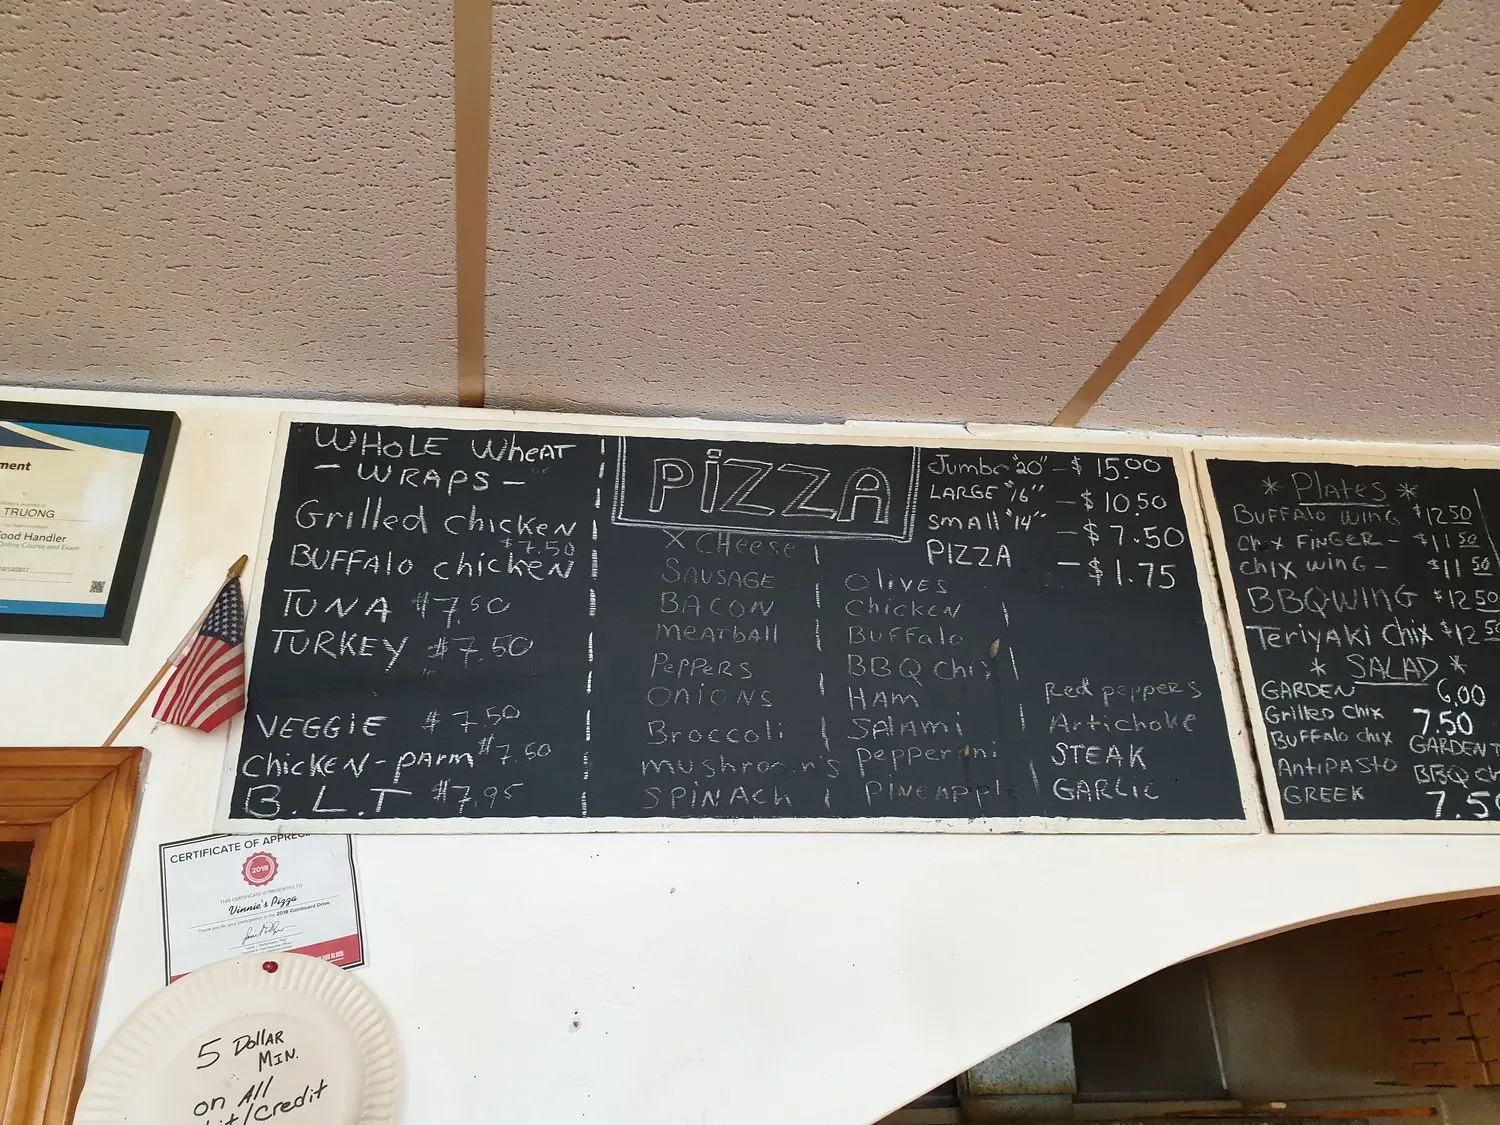 WHOLE WHEAT
- WRAPS -
Grilled chicken
$7.50
BUFFAlo chicken
TUNA $7.50
TURKEY $7.50
VEGGiE $7.50
Chicken-pArm $7.50
B.L.T $7.95
PiZZA
X CHeese
SAUSAGE
BACON
meATball
PePPERS
ONiONS
Broccoli
mushroom's
SPiNACh
Olives
Chicken
BUFFAlo
BBQ Chix
HAM
SAlAMi
Pepperoni
PiNEApple
Red peppers
Artichoke
STEAK
GARLiC
Jumbo "20" - $15.00
LARGE "16" - $10.50
small "14" - $7.50
PIZZA - $1.75
* Plates *
BUFFAlo wiNG $12.50
Chix FiNGER - $11.50
Chix wiNG - $11.50
BBQ WING $12.50
TeriyAKi Chix $12.5
* SALAD *
GARDEN 6.00
Grilled Chix 7.50
BUFFAlo chix
GARDEN T
ANTiPASTO
BBQ Ch
GREEK 7.5
ment
TRUONG
ood Handler
Online Course and Exam
CERTIFICATE OF APPREC
2018
THIS CERTIFICATE IS PRESENTED TO
Vinnie's Pizza
Thank you for your participation in the 2018 Coinboard Drive.
5 DollAR
MIN.
on All
it/Credit